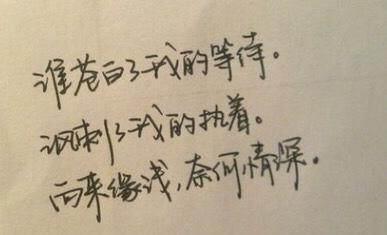 谁苍白了我的等待。
讽刺了我的执着。
而来缘浅，奈何情深。